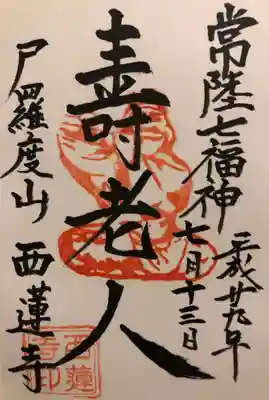 常陸七福神
平成廿九年
七月十三日
壽老人
尸羅度山
西蓮寺
西蓮
寺印